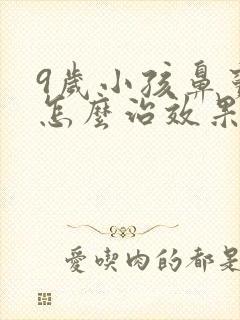 9歲小孩鼻
怎麼治效果
愛喫肉的都是